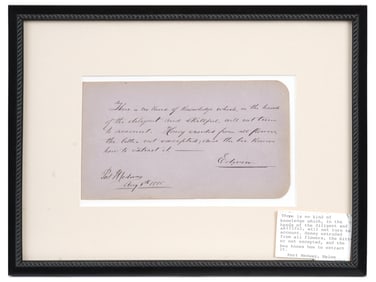 There is no kind of knowledge which, in the hands
of the diligent and skillful, will not turn
to account. Honey exudes from all flowers
the bitter not excepted, and the bee knows
how to extract it
Aug 8th 1885
There is no kind of
knowledge which, in the
hands of the diligent and
skillful, will not turn to
account. Honey extruded
from all flowers, the bitter
not excepted, and the
bee knows how to extract
it.